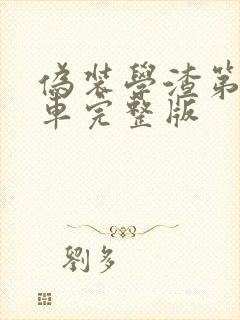 偽裝學渣第
車完整版
劉多